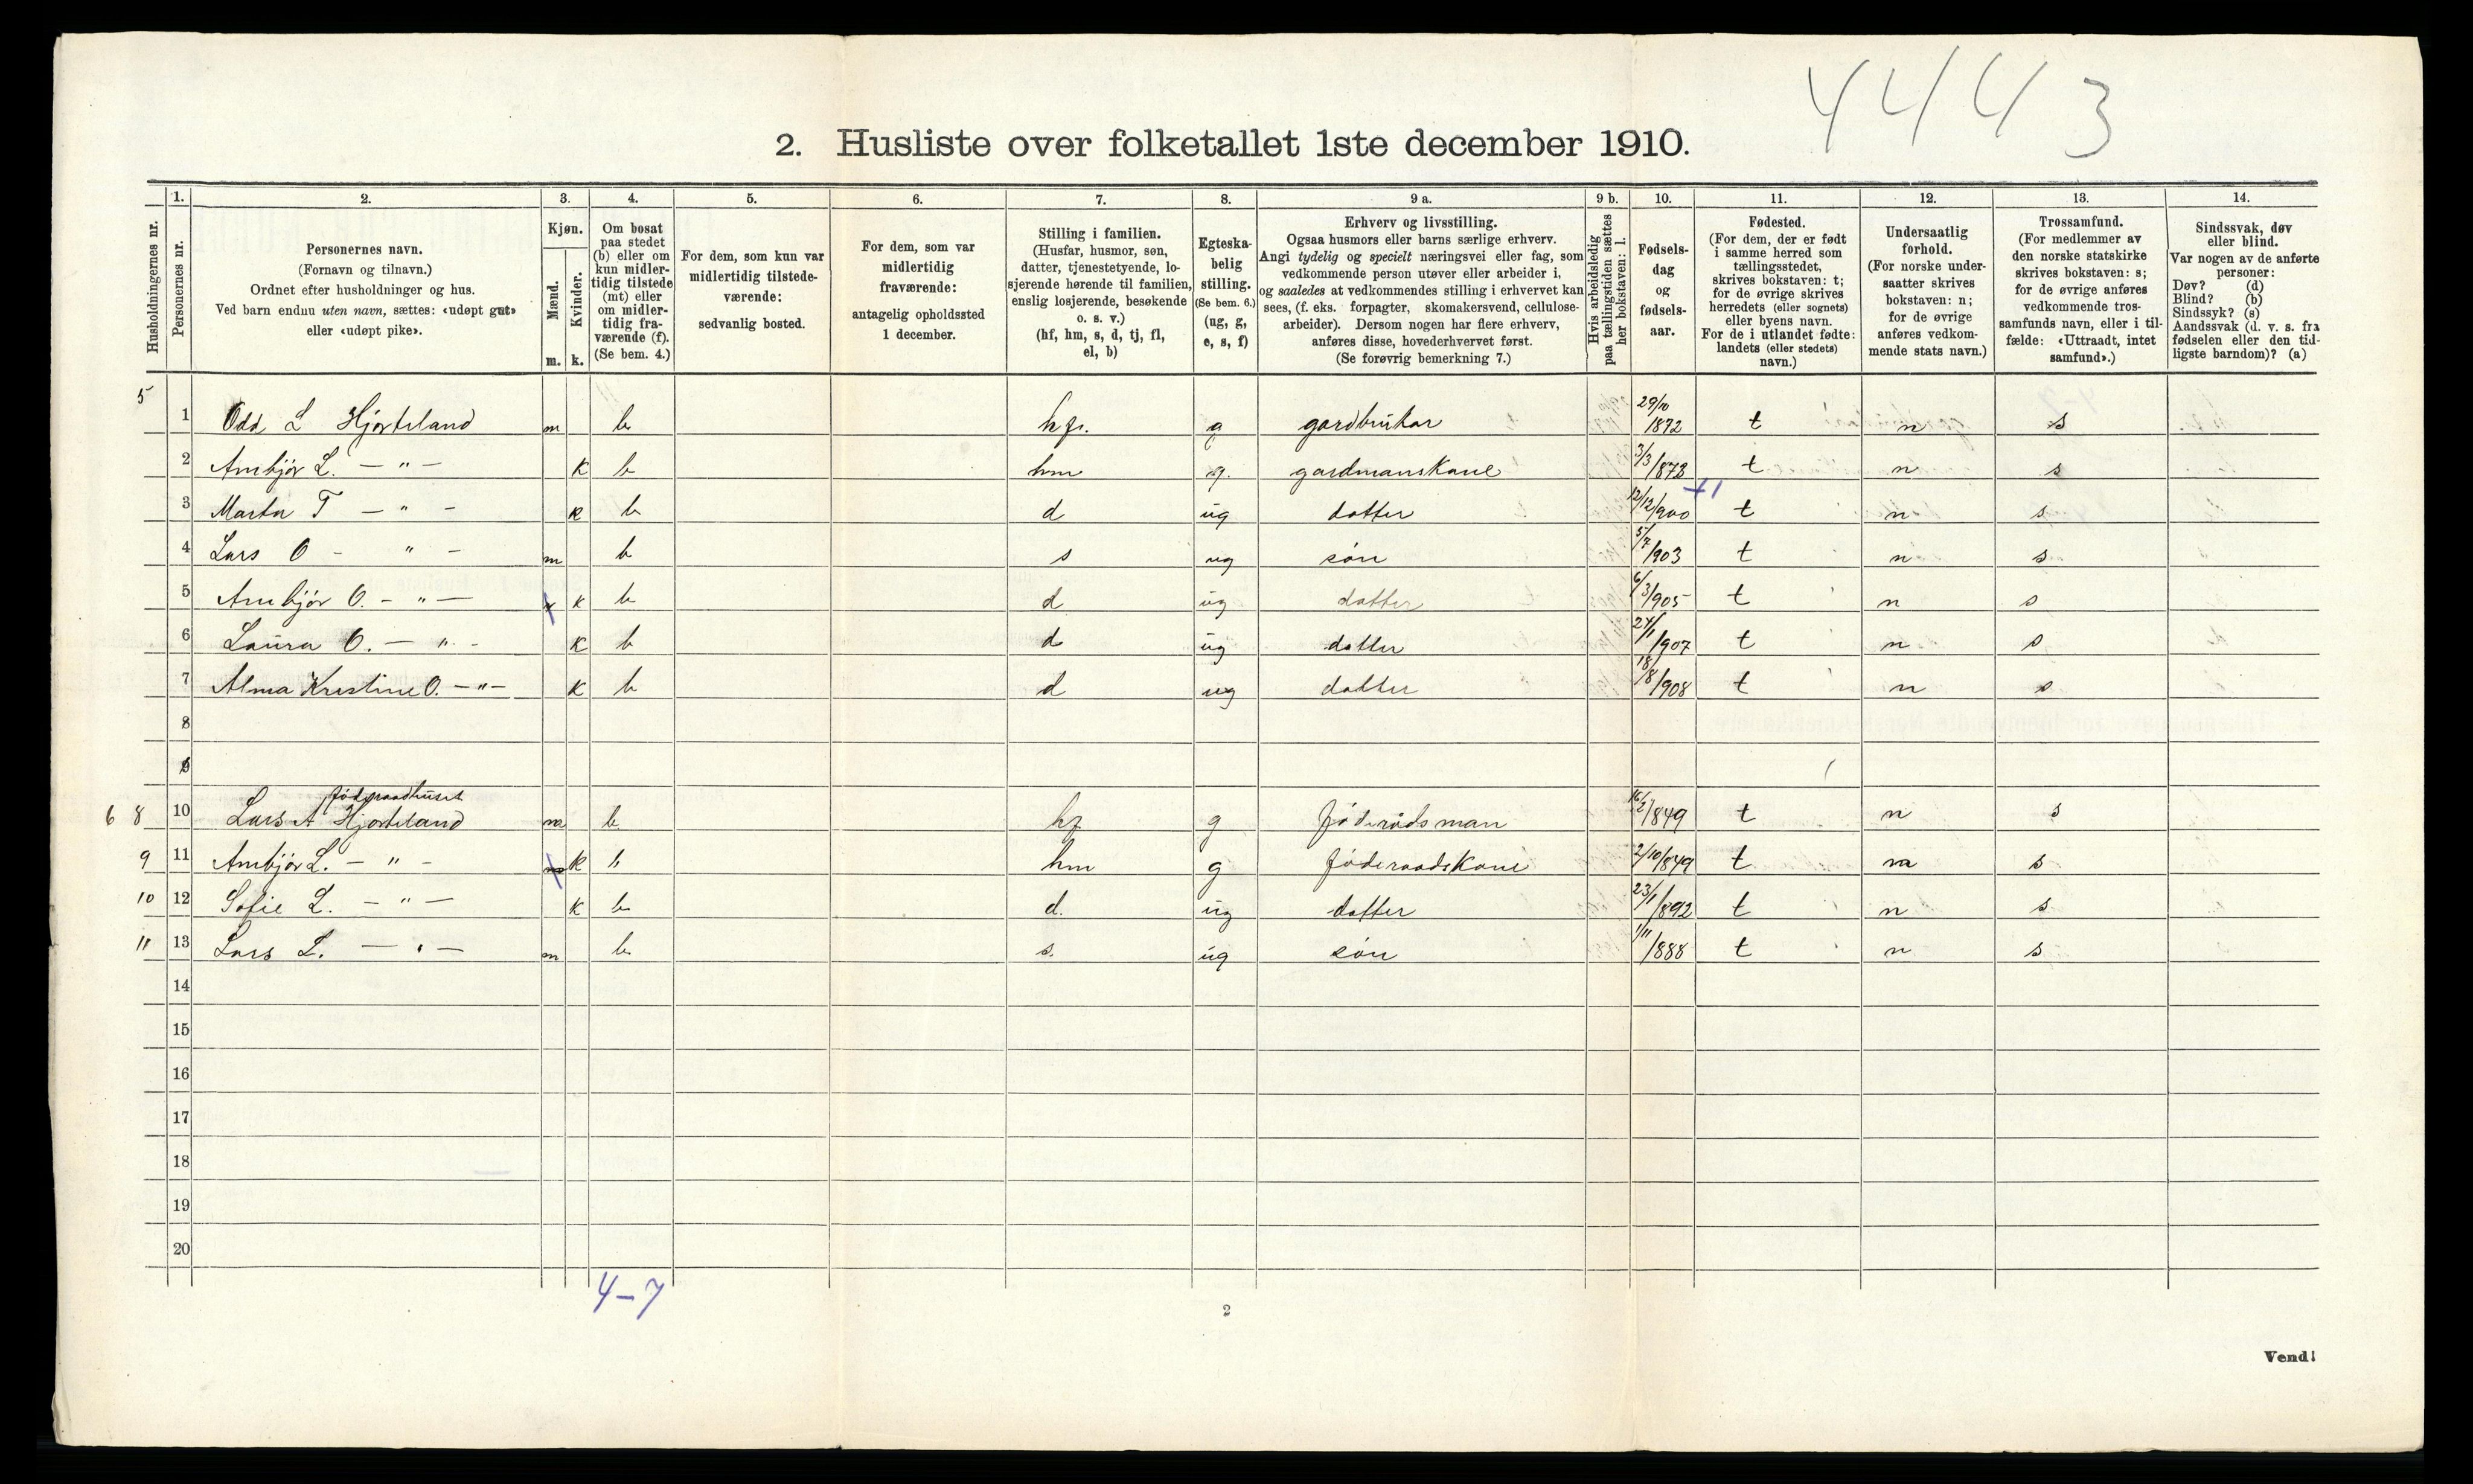 4443
2. Husliste over folketallet 1ste december 1910.
Husholdningernes nr.
1. Personernes nr.
2. Personernes navn.
(Fornavn og tilnavn.)
Ordnet efter husholdninger og hus.
Ved barn endnu uten navn, sættes: «udøpt gut»
eller «udøpt pike».
3. Kjøn.
Mænd. m.
Kvinder. k.
4. Om bosat
paa stedet
(b) eller om
kun midler-
tidig tilstede
(mt) eller
om midler-
tidig fra-
værende (f).
(Se bem. 4.)
5. For dem, som kun var
midlertidig tilstede-
værende:
sedvanlig bosted.
6. For dem, som var
midlertidig
fraværende:
antagelig opholdssted
1 december.
7. Stilling i familien.
(Husfar, husmor, søn,
datter, tjenestetyende, lo-
sjerende hørende til familien,
enslig losjerende, besøkende
o. s. v.)
(hf, hm, s, d, tj, fl,
el, b)
8. Egteska-
belig
stilling.
(Se bem. 6.)
(ug, g,
e, s, f)
9 a. Erhverv og livsstilling.
Ogsaa husmors eller barns særlige erhverv.
Angi tydelig og specielt næringsvei eller fag, som
vedkommende person utøver eller arbeider i,
og saaledes at vedkommendes stilling i erhvervet kan
sees, (f. eks. forpagter, skomakersvend, cellulose-
arbeider). Dersom nogen har flere erhverv,
anføres disse, hovederhvervet først.
(Se forøvrig bemerkning 7.)
9 b. Hvis arbeidsledig
paa tællingstiden sættes
her bokstaven: l.
10. Fødsels-
dag
og
fødsels-
aar.
11. Fødested.
(For dem, der er født
i samme herred som
tællingsstedet,
skrives bokstaven: t;
for de øvrige skrives
herredets (eller sognets)
eller byens navn.
For de i utlandet fødte:
landets (eller stedets)
navn.)
12. Undersaatlig
forhold.
(For norske under-
saatter skrives
bokstaven: n;
for de øvrige
anføres vedkom-
mende stats navn.)
13. Trossamfund.
(For medlemmer av
den norske statskirke
skrives bokstaven: s;
for de øvrige anføres
vedkommende tros-
samfunds navn, eller i til-
fælde: «Uttraadt, intet
samfund».)
14. Sindssvak, døv
eller blind.
Var nogen av de anførte
personer:
Døv? (d)
Blind? (b)
Sindssyk? (s)
Aandssvak (d. v. s. fra
fødselen eller den tid-
ligste barndom)? (a)
5 1 Odd L Hjorteland m b hf. g gardbrukar 29/10 1872 t n s
2 Ambjør L. — " — k b hm g. gardmanskane 3/3/873 t n s
+1
3 Marta T — " — k b d ug datter 12/12/900 t n s
4 Lars O — " — m b s ug søn 5/7/903 t n s
5 Ambjør O. — " — k b d ug datter 6/3/905 t n s
6 Laura O. — " — k b d ug datter 24/1/907 t n s
7 Alma Kristine O. — " — k b d ug datter 18/8/908 t n s
8
9
føderaadhuset
6 8 10 Lars A Hjorteland m b hf g føderådsman 16/2/849 t n s
9 11 Ambjør L. — " — k b hm g føderaadskone 2/10/849 t n s
10 12 Sofie L. — " — k b d. ug datter 23/1/892 t n s
11 13 Lars L. — " — m b s. ug søn 1/11/888 t n s
14
15
16
17
18
19
20
4–7
2
Vend!